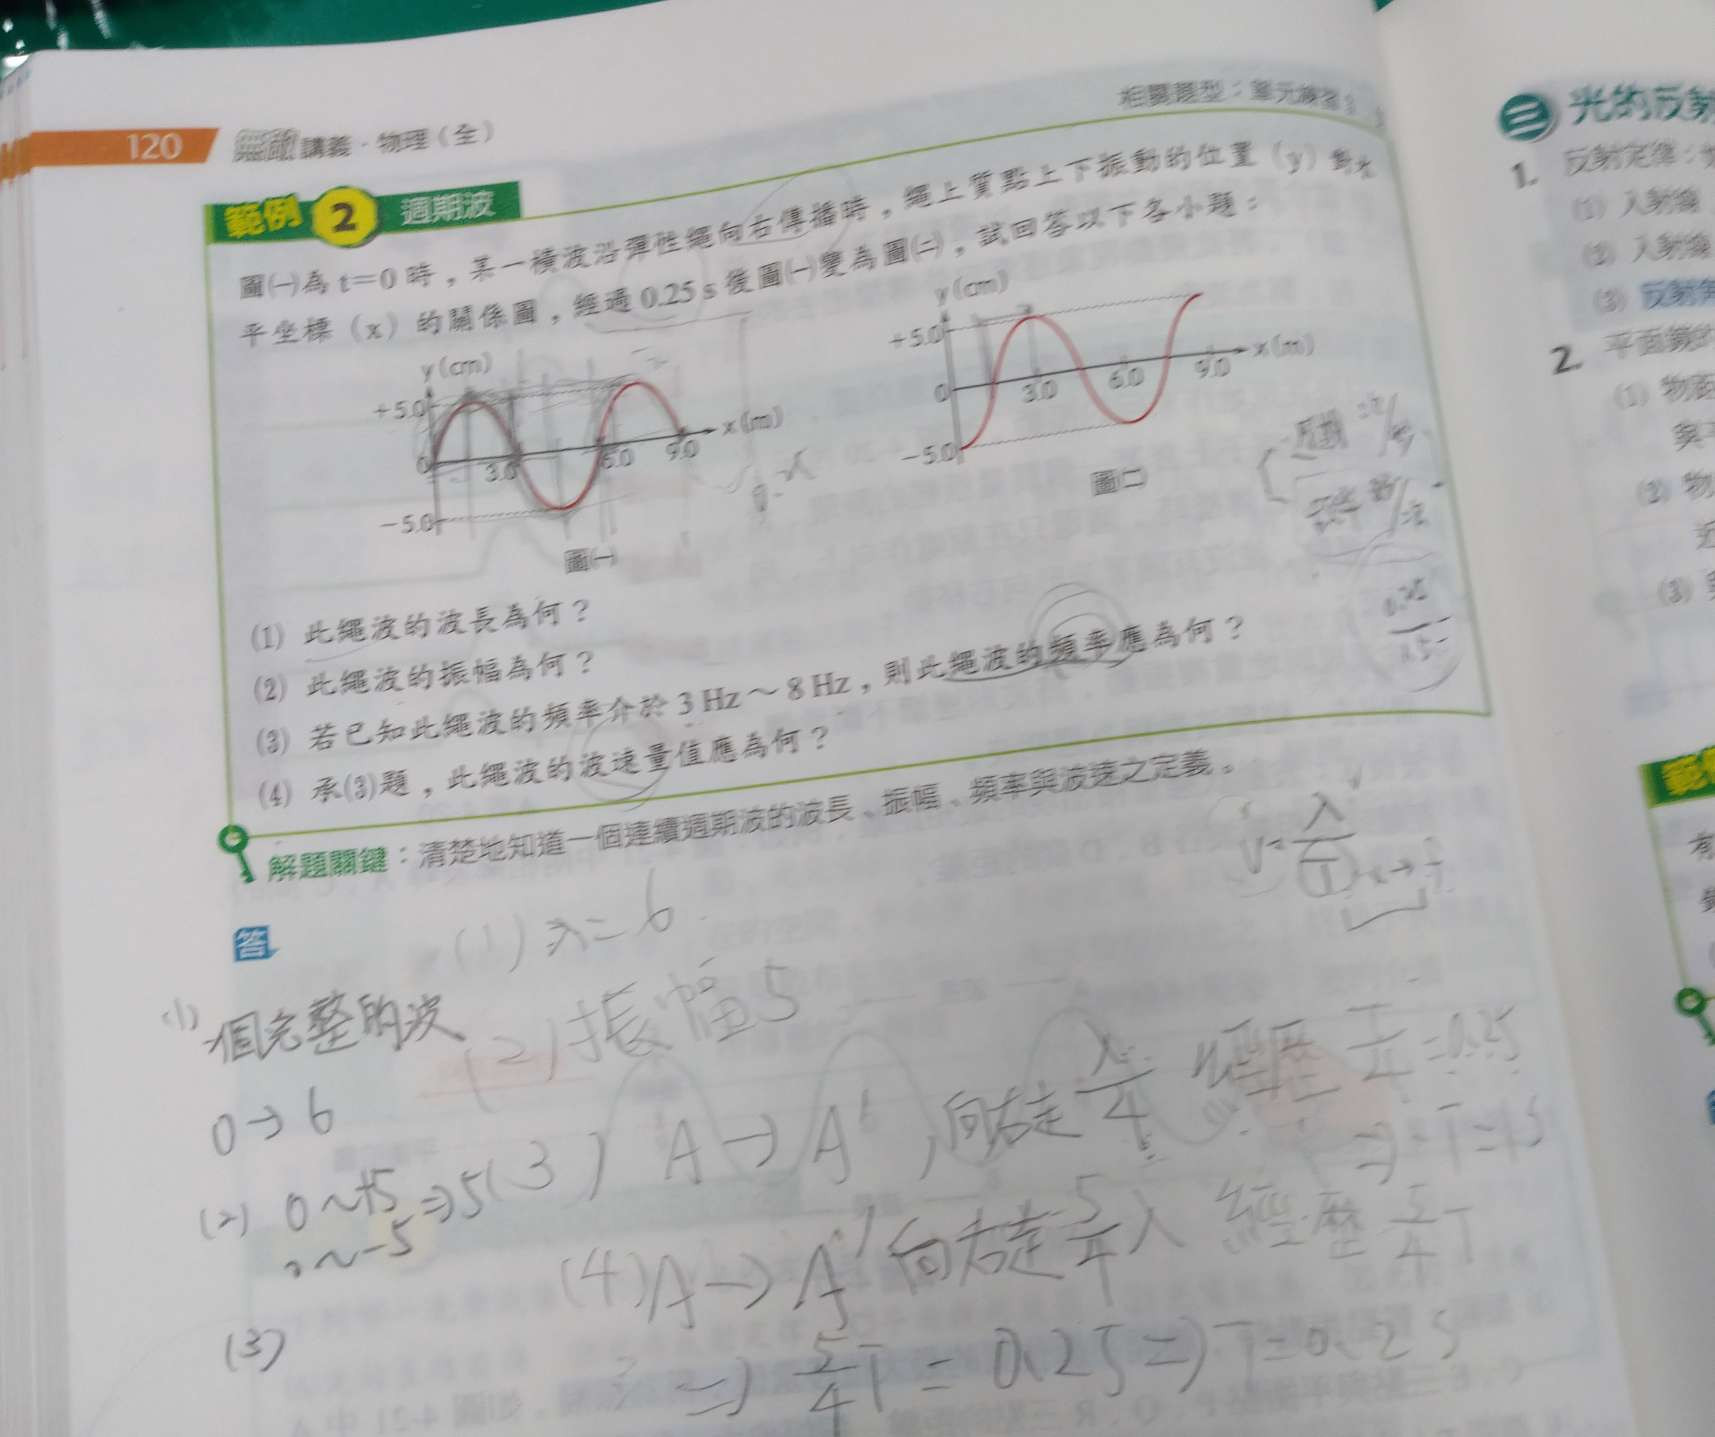 120 無敵講義·物理(全)
相關題型:單元練習
範例 2 週期波
圖㈠為 t=0 時,某一橫波沿彈性繩向右傳播時,繩上質點上下振動的位置(y)對水
平坐標(x)的關係圖,經過 0.25 s 後圖㈠變為圖㈡,試回答以下各小題:
y(cm)
+5.0
0
3.0
6.0
9.0
x(m)
-5.0
圖㈠
y(cm)
+5.0
0
3.0
6.0
9.0
x(m)
-5.0
圖二
(1) 此繩波的波長為何?
(2) 此繩波的振幅為何?
(3) 若已知此繩波的頻率介於 3 Hz~8 Hz,則此繩波的頻率應為何?
(4) 承(3)題,此繩波的波速量值應為何?
解題關鍵:清楚地知道一個連續週期波的波長、振幅、頻率與波速之定義。
答
(1) λ=6
(2) 振幅5
(1)
個完整的波
0→6
(2) 0~+5 ⇒5
~-5
(3) A→A', 向右走 λ/4 經歷 T/4=0.25
⇒T=1s
(4) A→A' 向右走 5/4 λ 經歷 5/4 T
⇒ 5/4 T = 0.25 ⇒ T=0.2s
(3)
三 光的反射
1. 反射定律:
(1) 入射線
(2) 入射線
(3) 反射角
2. 平面鏡
(1) 物
(2) 物
(3)